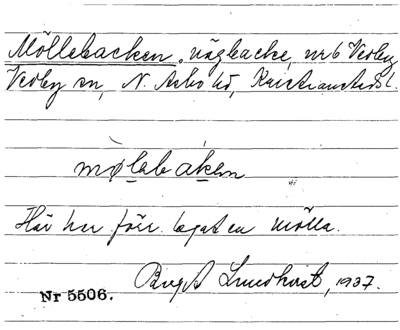 Möllebacken, vägbacke, nr 6 Vedby
Vedby sn, N. Åsbo hd, Kristianstads l.
mø̀labákən
Här har förr legat en mölla.
Birgit Lundkvist, 1937.
Nr 5506.